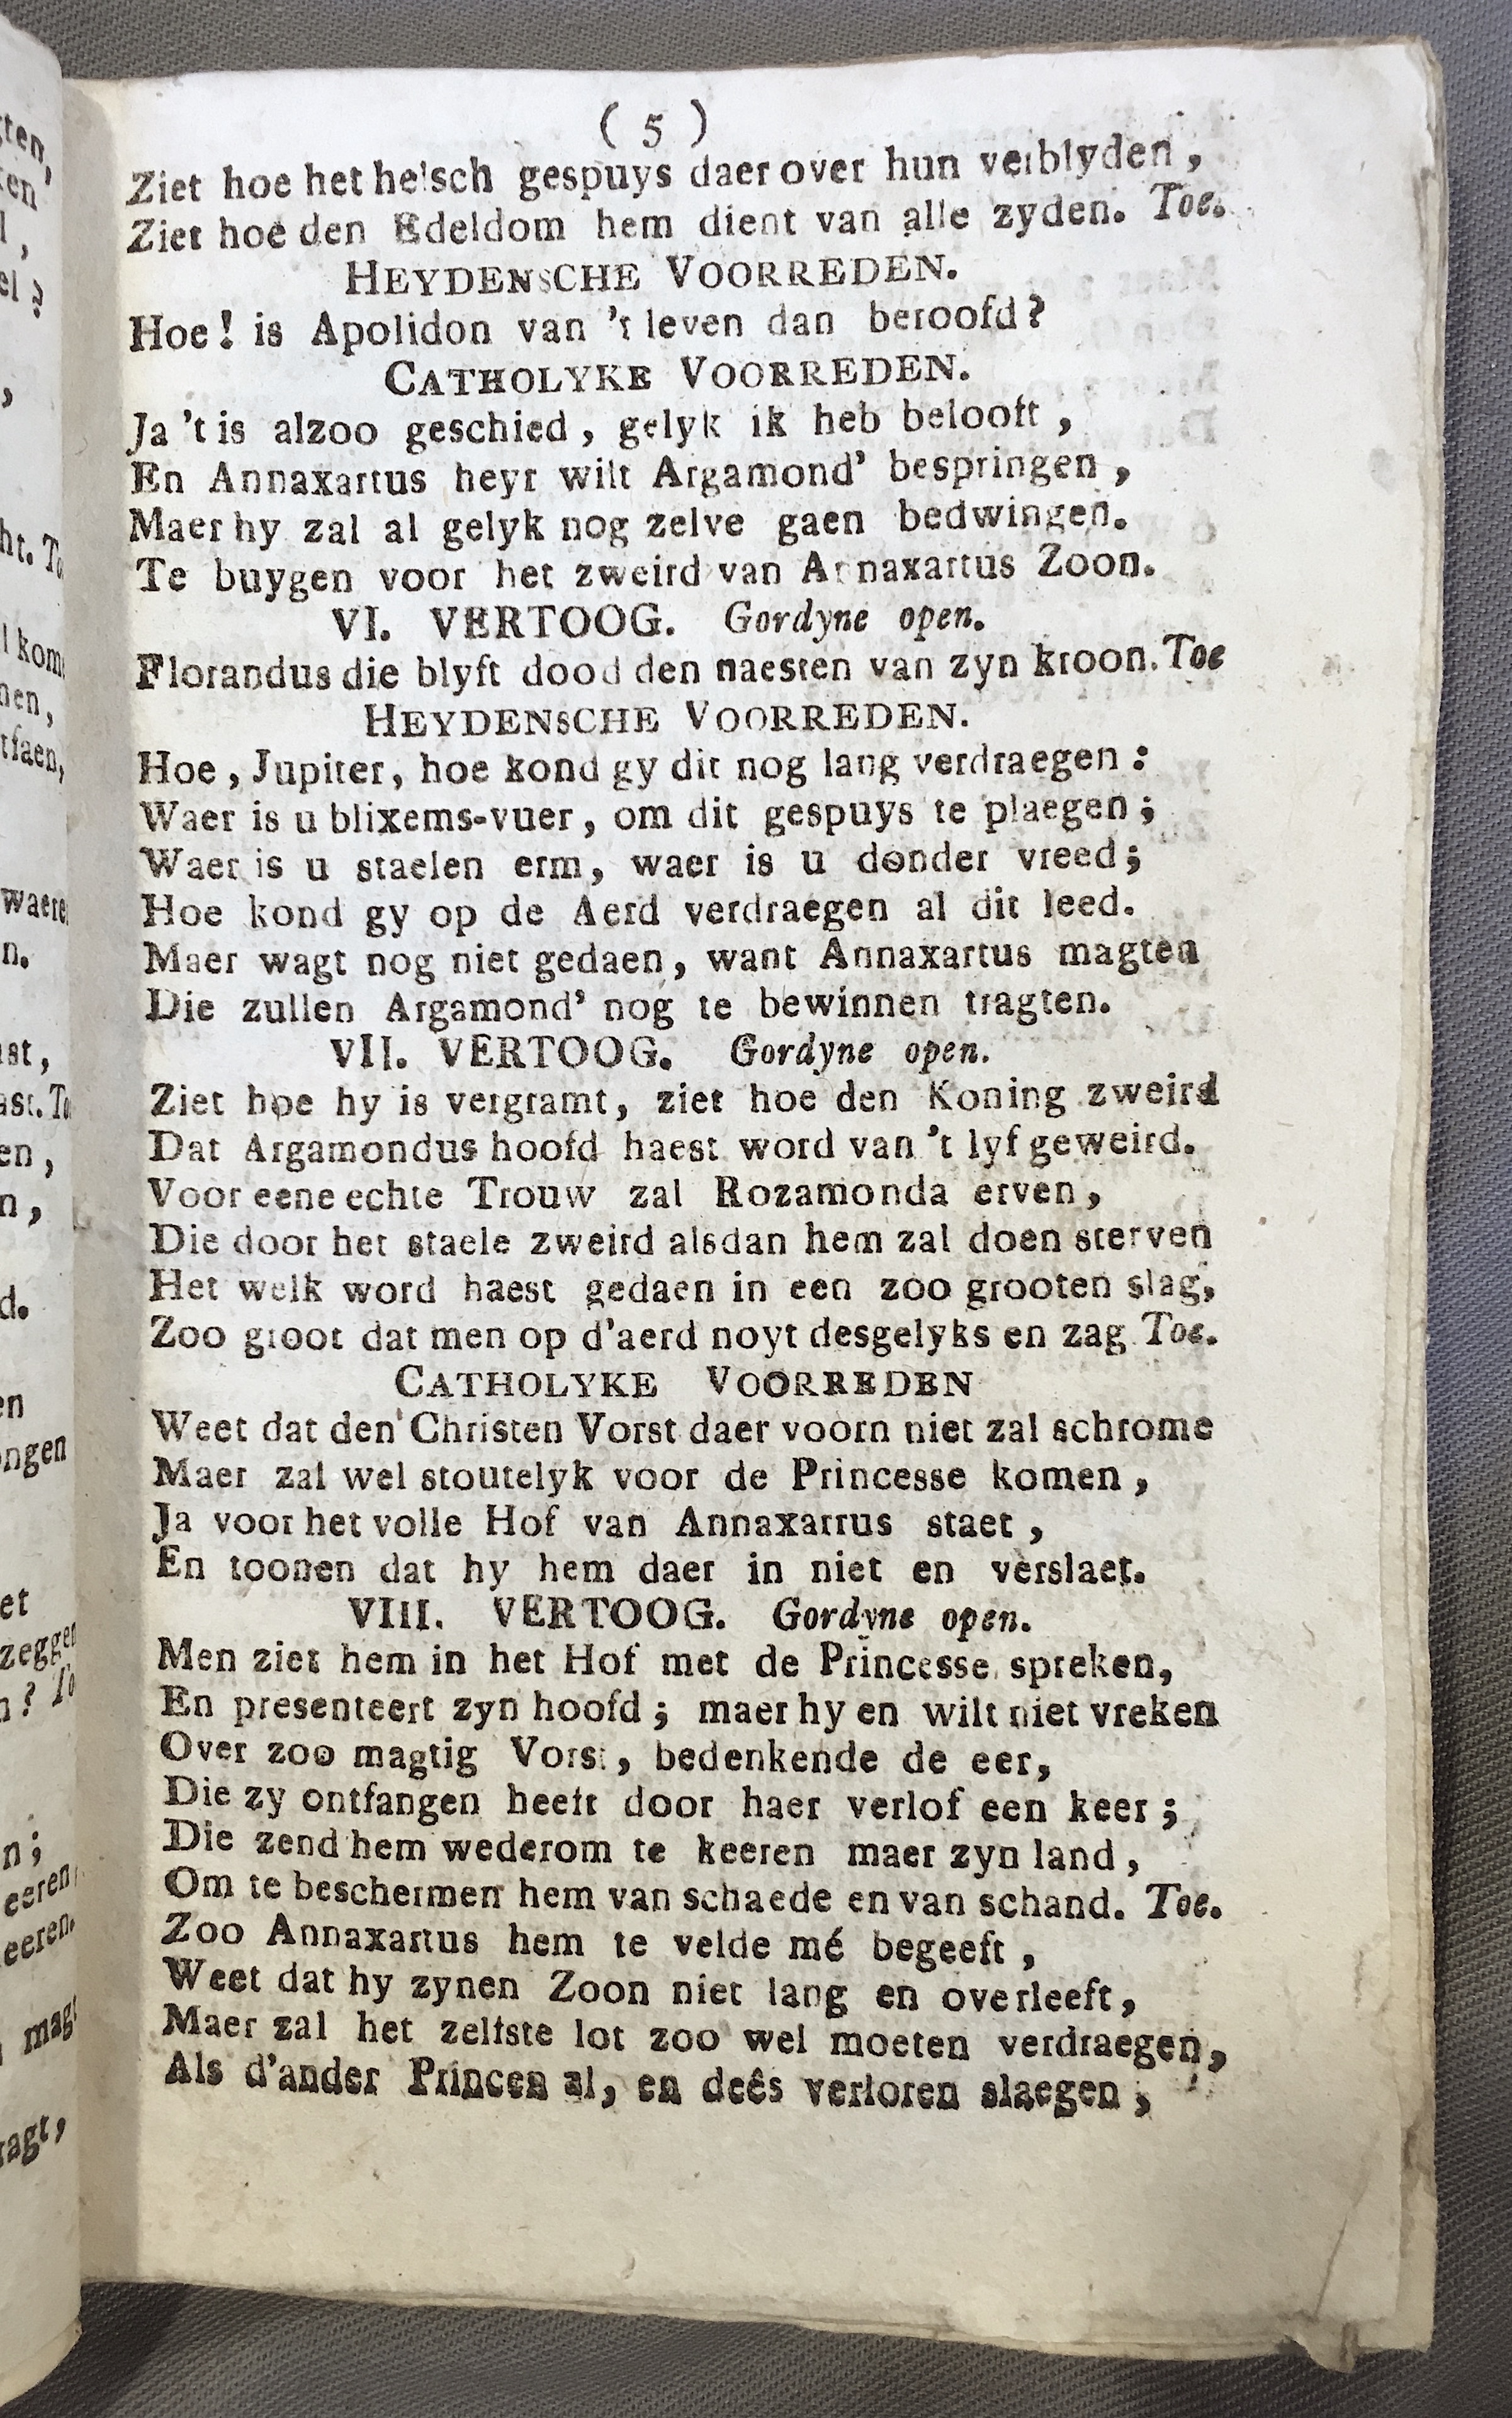 ( 5 )
Ziet hoe het helsch gespuys daer over hun verblyden,
Ziet hoe den Edeldom hem dient van alle zyden. Toe.
HEYDENSCHE VOORREDEN.
Hoe! is Apolidon van 't leven dan beroofd?
CATHOLYKE VOORREDEN.
Ja 't is alzoo geschied, gelyk ik heb belooft,
En Annaxartus heyr wilt Argamond' bespringen,
Maer hy zal al gelyk nog zelve gaen bedwingen.
Te buygen voor het zweird van Annaxartus Zoon.
VI. VERTOOG. Gordyne open.
Florandus die blyft dood den naesten van zyn kroon. Toe
HEYDENSCHE VOORREDEN.
Hoe, Jupiter, hoe kond gy dit nog lang verdraegen:
Waer is u blixems-vuer, om dit gespuys te plaegen;
Waer is u staelen erm, waer is u donder vreed;
Hoe kond gy op de Aerd verdraegen al dit leed.
Maer wagt nog niet gedaen, want Annaxartus magten
Die zullen Argamond' nog te bewinnen tragten.
VII. VERTOOG. Gordyne open.
Ziet hoe hy is vergramt, ziet hoe den Koning zweird
Dat Argamondus hoofd haest word van 't lyf geweird.
Voor eene echte Trouw zal Rozamonda erven,
Die door het staele zweird alsdan hem zal doen sterven
Het welk word haest gedaen in een zoo grooten slag,
Zoo groot dat men op d'aerd noyt desgelyks en zag Toe.
CATHOLYKE VOORREDEN
Weet dat den Christen Vorst daer voorn niet zal schrome
Maer zal wel stoutelyk voor de Princesse komen,
Ja voor het volle Hof van Annaxarrus staet,
En toonen dat hy hem daer in niet en verslaet.
VIII. VERTOOG. Gordyne open.
Men ziet hem in het Hof met de Princesse spreken,
En presenteert zyn hoofd; maer hy en wilt niet vreken
Over zoo magtig Vorst, bedenkende de eer,
Die zy ontfangen heeft door haer verlof een keer;
Die zend hem wederom te keeren maer zyn land,
Om te beschermen hem van schaede en van schand. Toe.
Zoo Annaxartus hem te velde mé begeeft,
Weet dat hy zynen Zoon niet lang en overleeft,
Maer zal het zelfste lot zoo wel moeten verdraegen,
Als d'ander Princen al, en deês verloren slaegen;